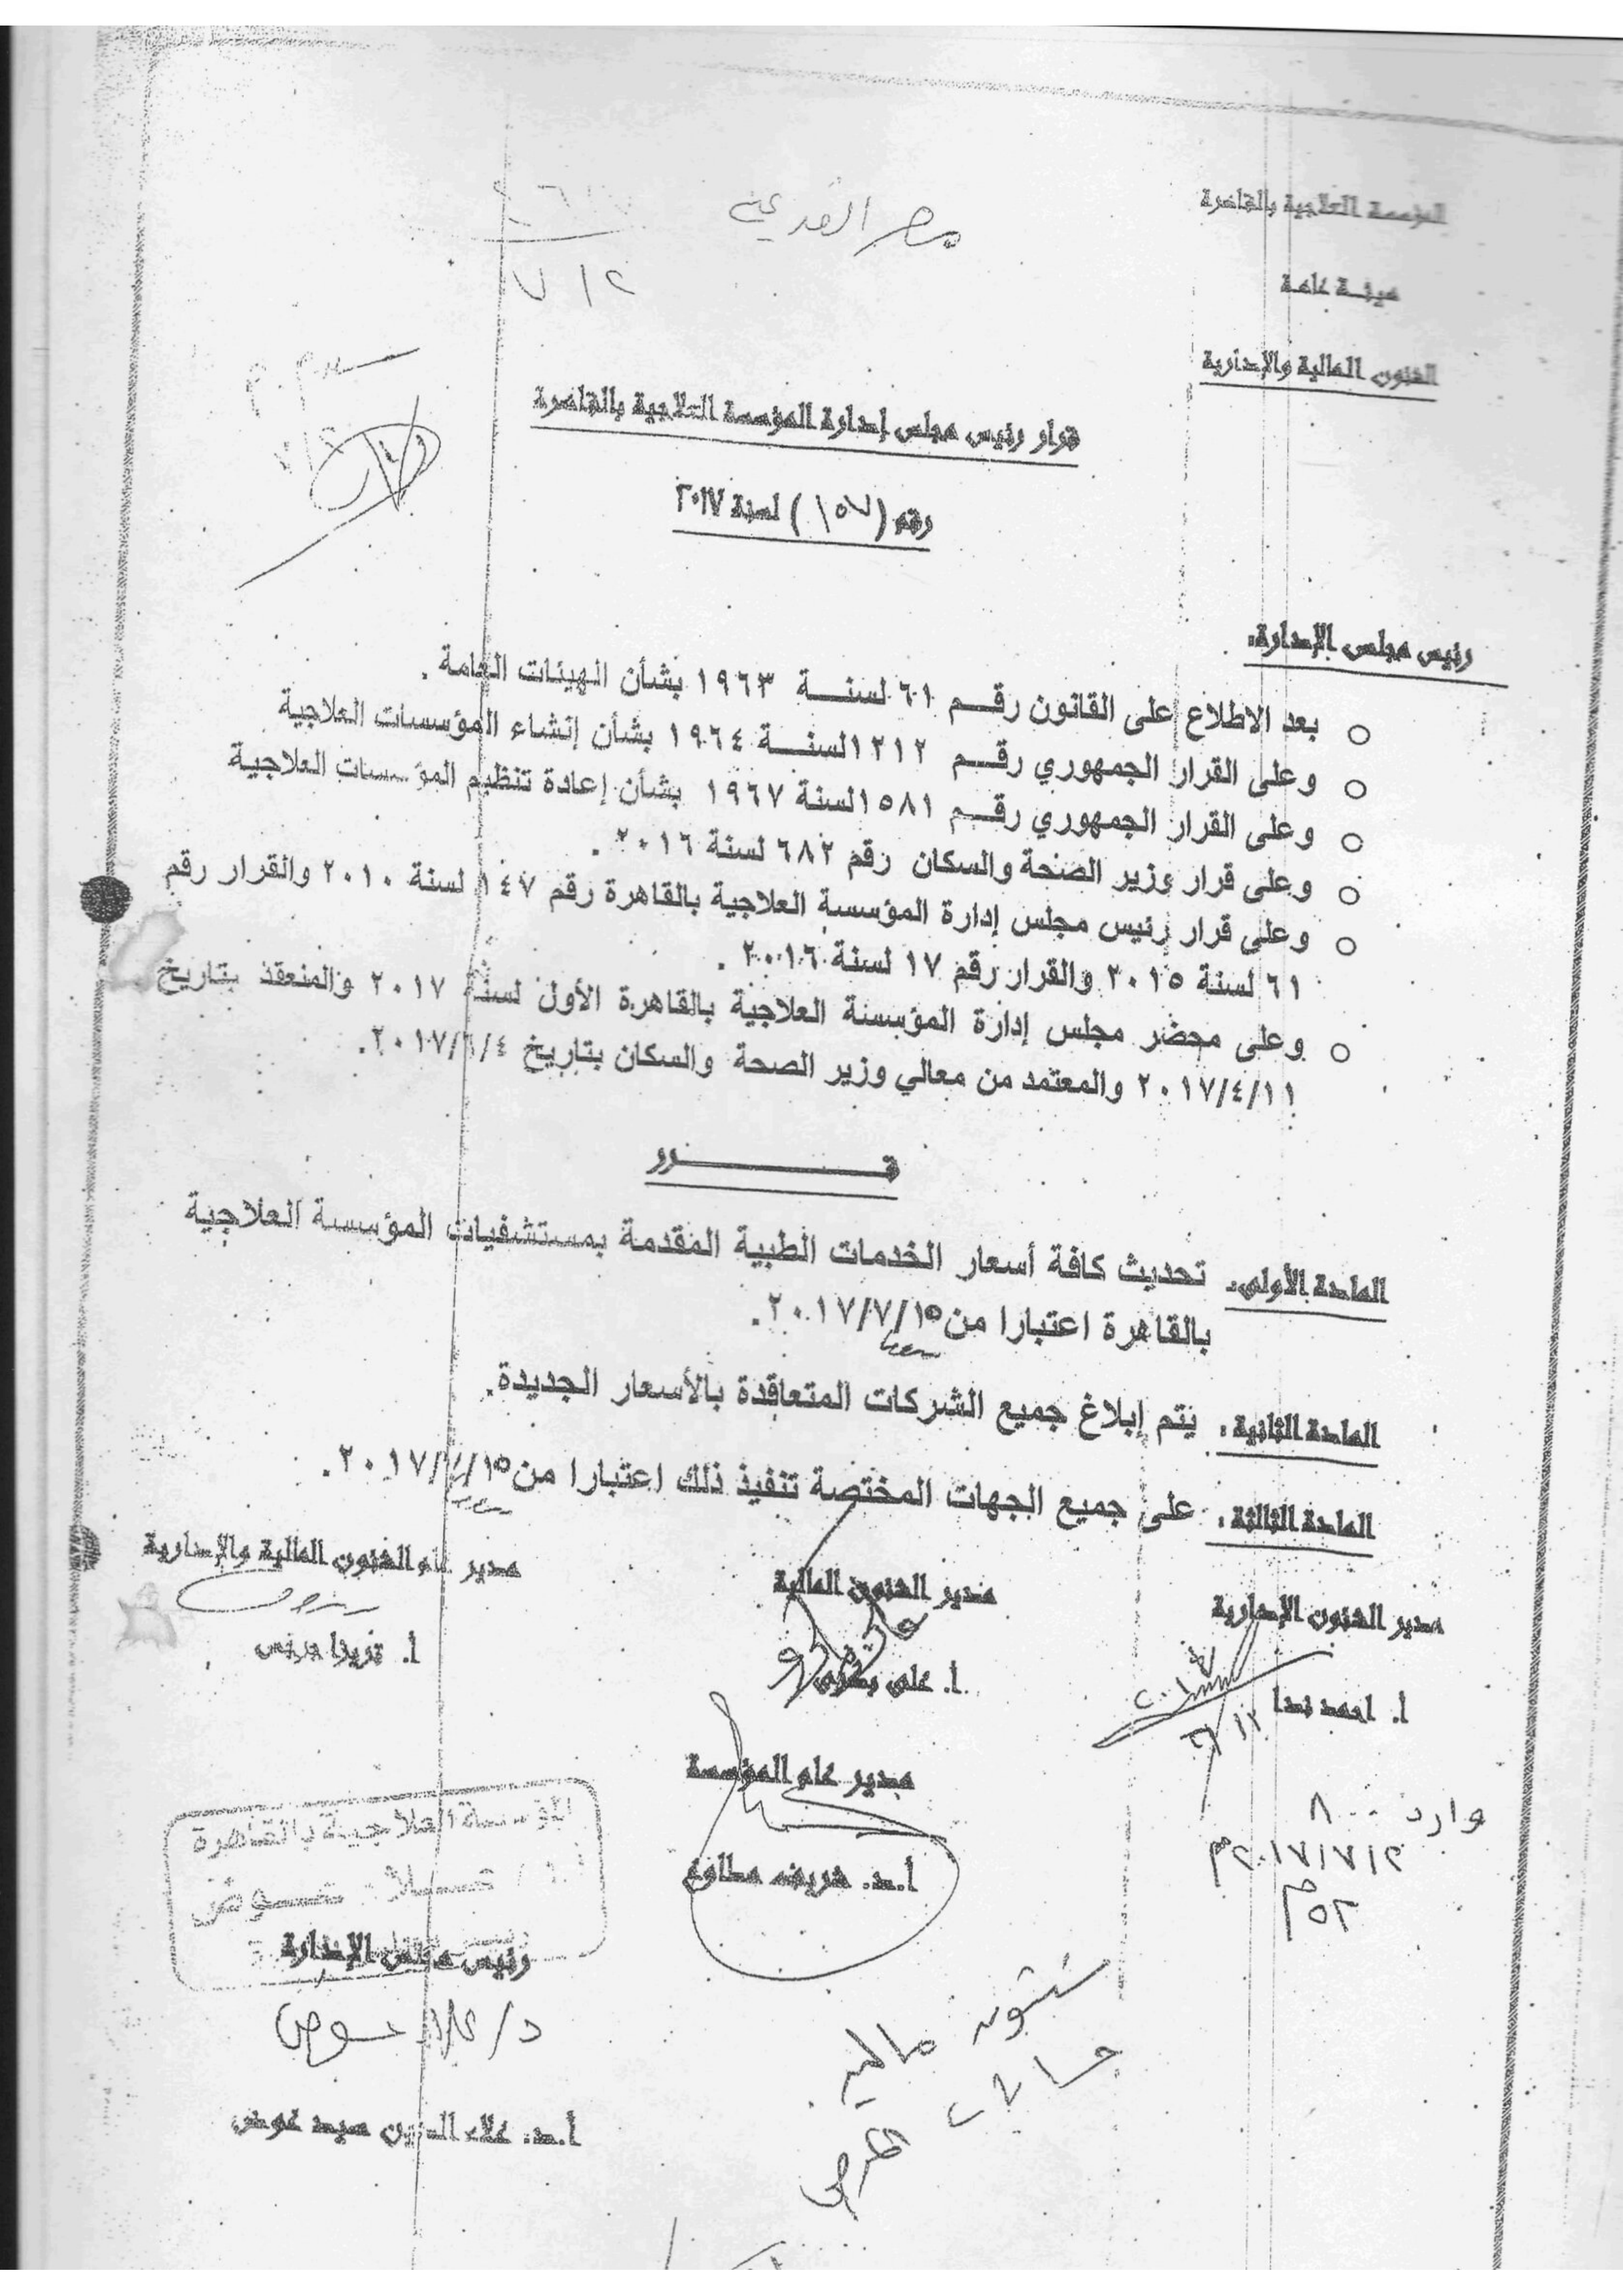 المؤسسة العلاجية بالقاهرة
هيئة عامة
الشئون المالية والإدارية
مصر القديمة
٢ / ٧
قرار رئيس مجلس إدارة المؤسسة العلاجية بالقاهرة
رقم ( ١٥٧ ) لسنة ٢٠١٧
رئيس مجلس الإدارة:
○ بعد الاطلاع على القانون رقم ٦١ لسنة ١٩٦٣ بشأن الهيئات العامة .
○ وعلى القرار الجمهوري رقم ١٢١٢ لسنة ١٩٦٤ بشأن إنشاء المؤسسات العلاجية
○ وعلى القرار الجمهوري رقم ١٥٨١ لسنة ١٩٦٧ بشأن إعادة تنظيم المؤسسات العلاجية
○ وعلى قرار وزير الصحة والسكان رقم ٦٨٢ لسنة ٢٠١٦ .
○ وعلى قرار رئيس مجلس إدارة المؤسسة العلاجية بالقاهرة رقم ١٤٧ لسنة ٢٠١٠ والقرار رقم
٦١ لسنة ٢٠١٥ والقرار رقم ١٧ لسنة ٢٠١٦ .
○ وعلى محضر مجلس إدارة المؤسسة العلاجية بالقاهرة الأول لسنة ٢٠١٧ والمنعقد بتاريخ
٢٠١٧/٤/١١ والمعتمد من معالي وزير الصحة والسكان بتاريخ ٢٠١٧/٦/٤.
قـــــرر
المادة الأولى. تحديث كافة أسعار الخدمات الطبية المقدمة بمستشفيات المؤسسة العلاجية
بالقاهرة اعتبارا من ٢٠١٧/٧/١٥.
المادة الثانية . يتم إبلاغ جميع الشركات المتعاقدة بالأسعار الجديدة.
المادة الثالثة . على جميع الجهات المختصة تنفيذ ذلك اعتبارا من ٢٠١٧/٧/١٥ .
مدير الشئون الإدارية مدير الشئون المالية مدير عام الشئون المالية والإدارية
أ. احمد ندا أ. على بدوى أ. تريزا جرجس
مدير عام المؤسسة
أ.د. شريف مطاوع
وارد ٨٠٠
٢٠١٧/٧/٢ م
المؤسسة العلاجية بالقاهرة
علاء عوض
رئيس مجلس الإدارة
د/ علاء عوض
أ.د. علاء الدين سيد عوض
شئون مالية
حسابات